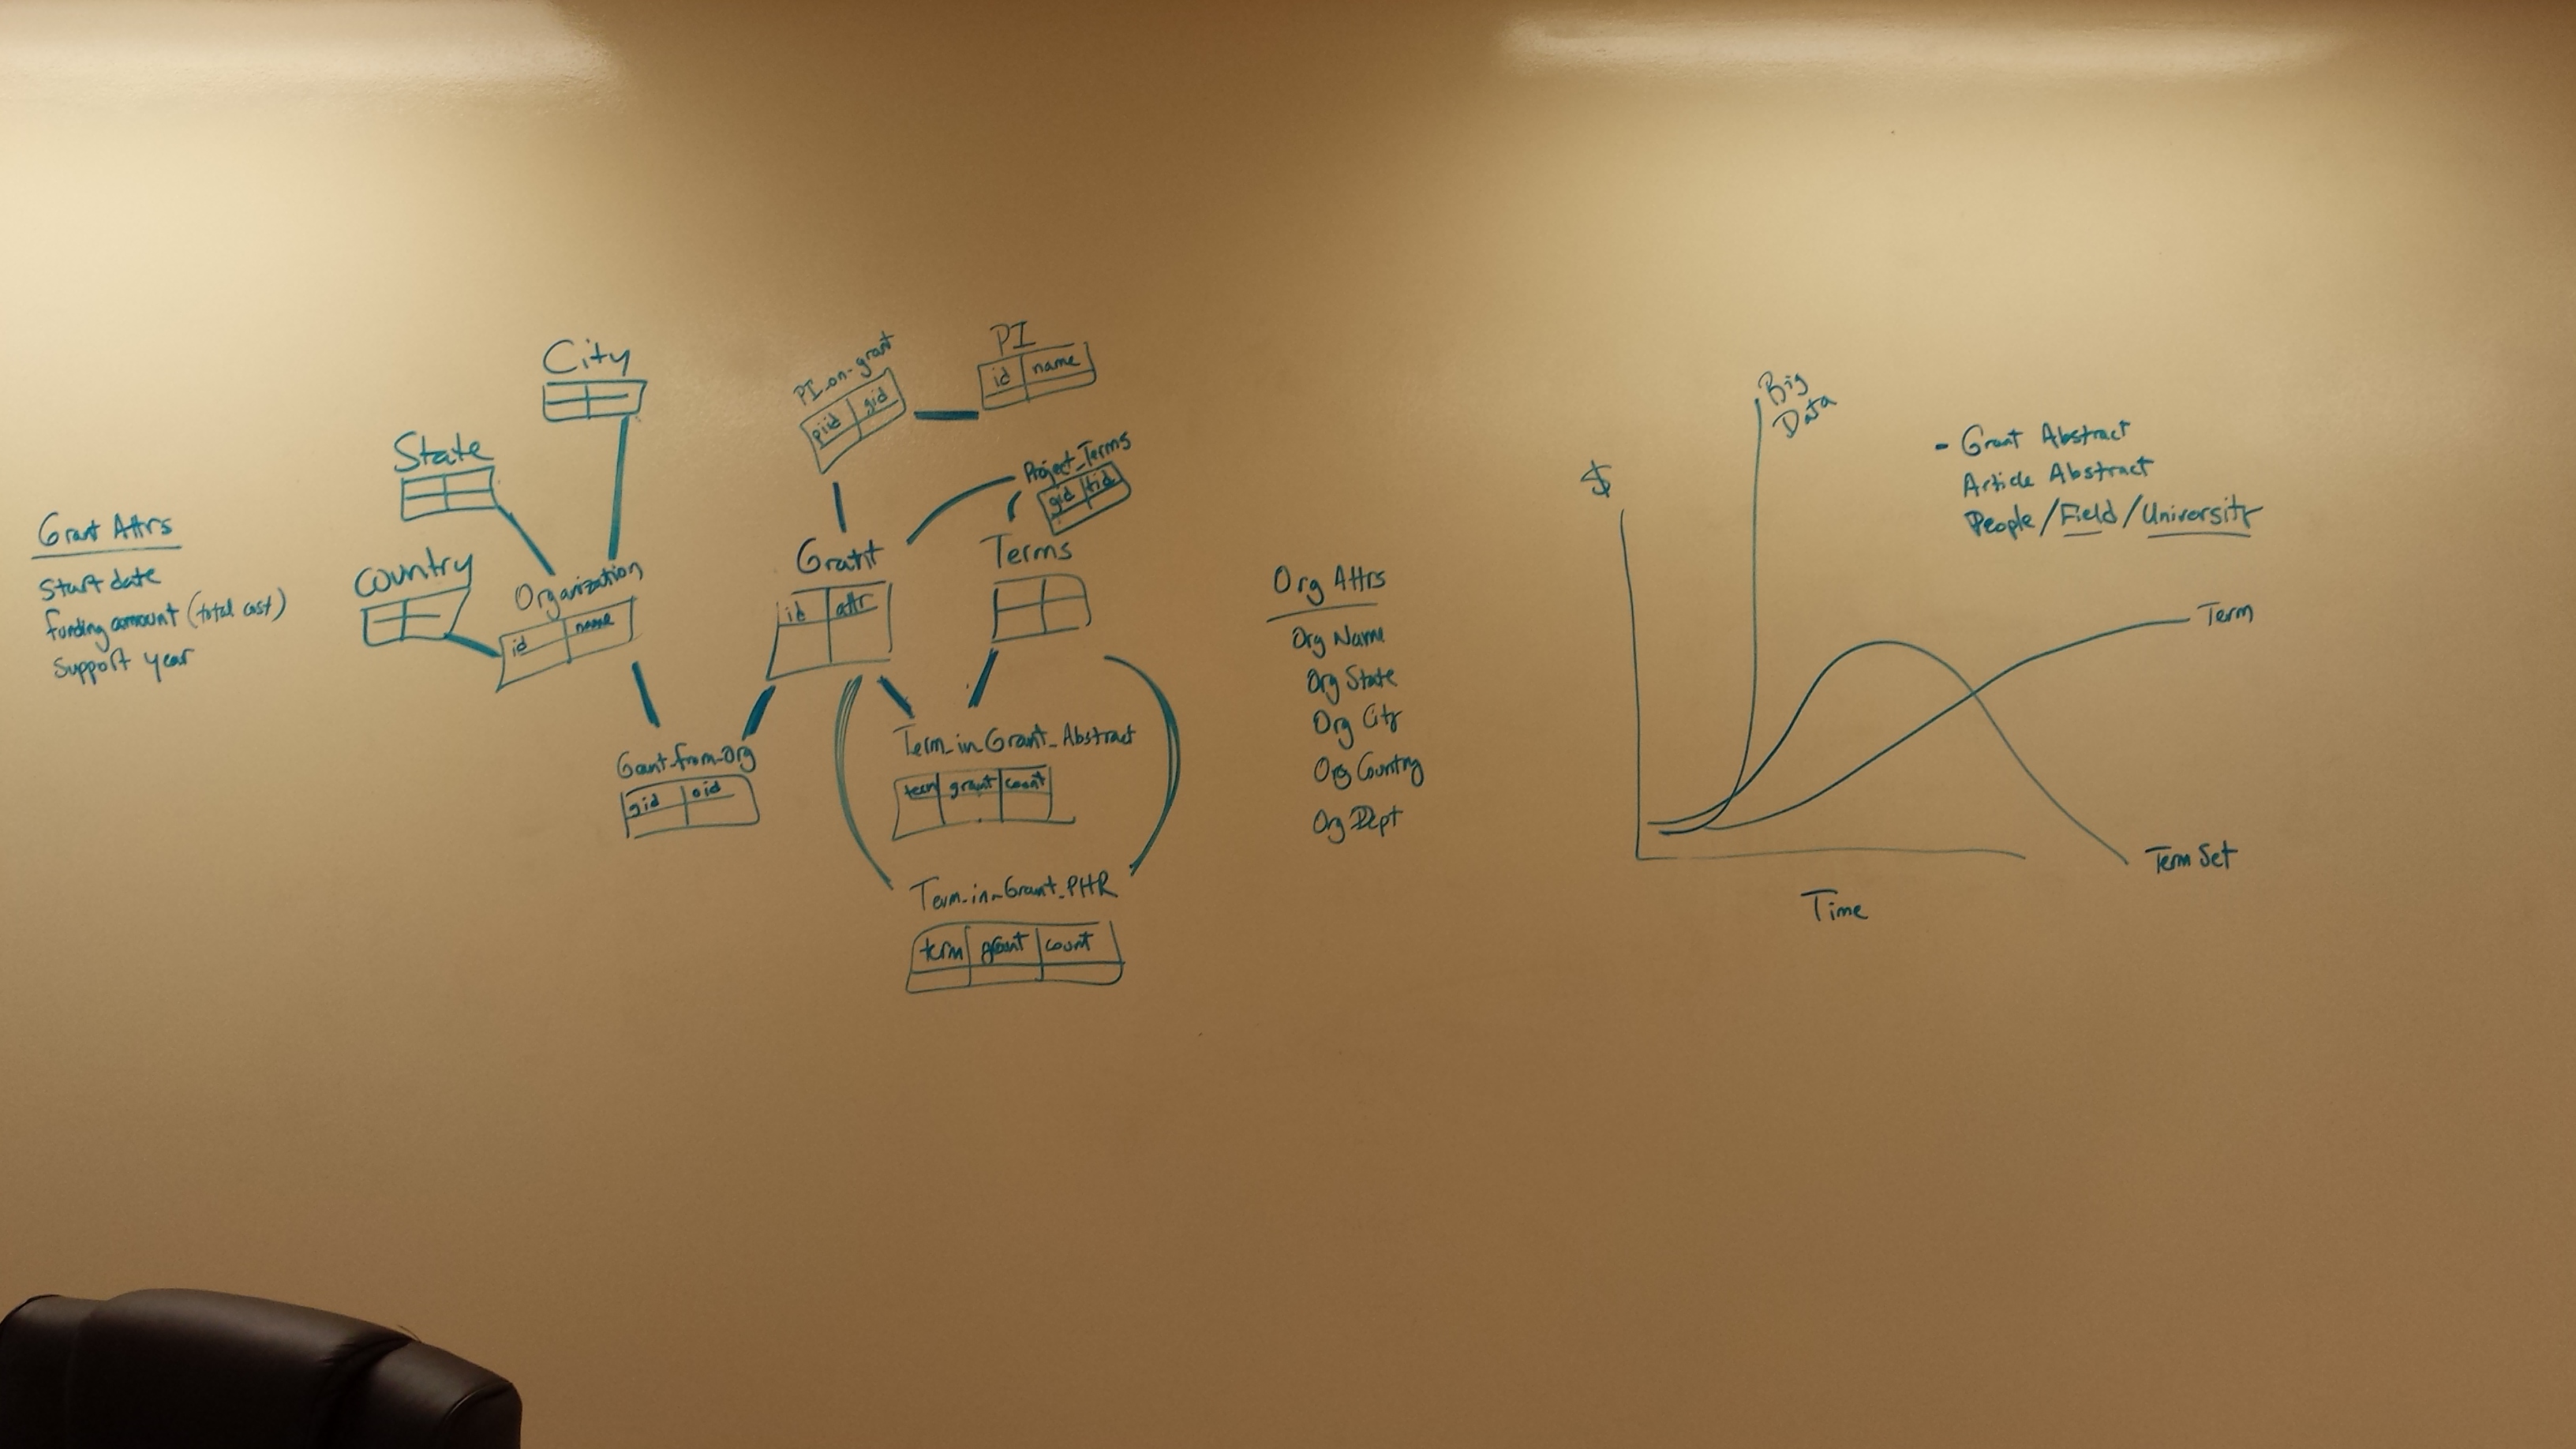 Grant Attrs
Start date
funding amount (total cost)
Support year
City
State
Country
Organization
id name
PI_on_grant
piid gid
PI
id name
Project_Terms
gid tid
Grant
id attr
Terms
Grant_from_Org
gid oid
Term_in_Grant_Abstract
term grant count
Term_in_Grant_PHR
term grant count
Org Attrs
Org Name
Org State
Org City
Org Country
Org Dept
$
Big
Data
- Grant Abstract
Article Abstract
People/Field/University
Term
Term Set
Time